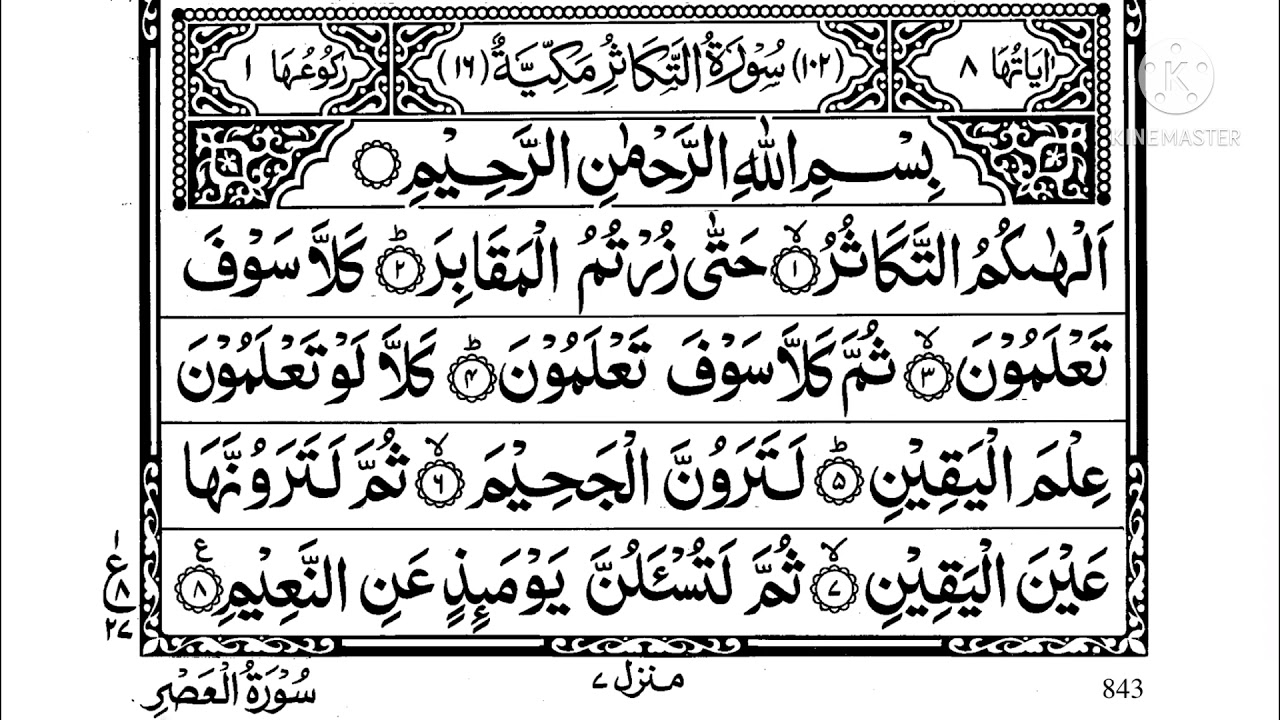 اٰيَاتُهَا ٨ (١٠٢) سُوْرَةُ التَّكَاثُرِ مَكِّيَّةٌ (١٦) رُكُوْعُهَا ١
KINEMASTER
بِسْمِ اللّٰهِ الرَّحْمٰنِ الرَّحِيْمِ
اَلْهٰىكُمُ التَّكَاثُرُ ۙ﴿١﴾ حَتّٰى زُرْتُمُ الْمَقَابِرَ ؕ﴿٢﴾ كَلَّا سَوْفَ
تَعْلَمُوْنَ ۙ﴿٣﴾ ثُمَّ كَلَّا سَوْفَ تَعْلَمُوْنَ ؕ﴿۴﴾ كَلَّا لَوْ تَعْلَمُوْنَ
عِلْمَ الْيَقِيْنِ ؕ﴿۵﴾ لَتَرَوُنَّ الْجَحِيْمَ ۙ﴿۶﴾ ثُمَّ لَتَرَوُنَّهَا
عَيْنَ الْيَقِيْنِ ۙ﴿۷﴾ ثُمَّ لَتُسْـَٔلُنَّ يَوْمَىِٕذٍ عَنِ النَّعِيْمِ ﴿٨﴾ ع
١
ع ٨
٢٧
منزل ۷
سُوْرَةُ الْعَصْرِ
843